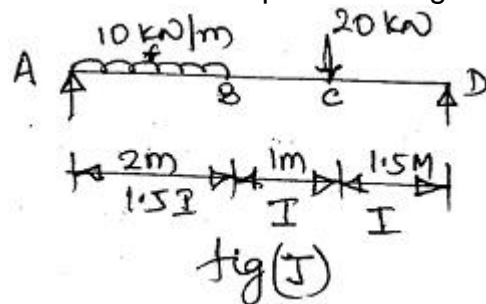 10 kN/m
20 kN
A
B
C
D
2m
1m
1.5M
1.5I
I
I
fig(J)